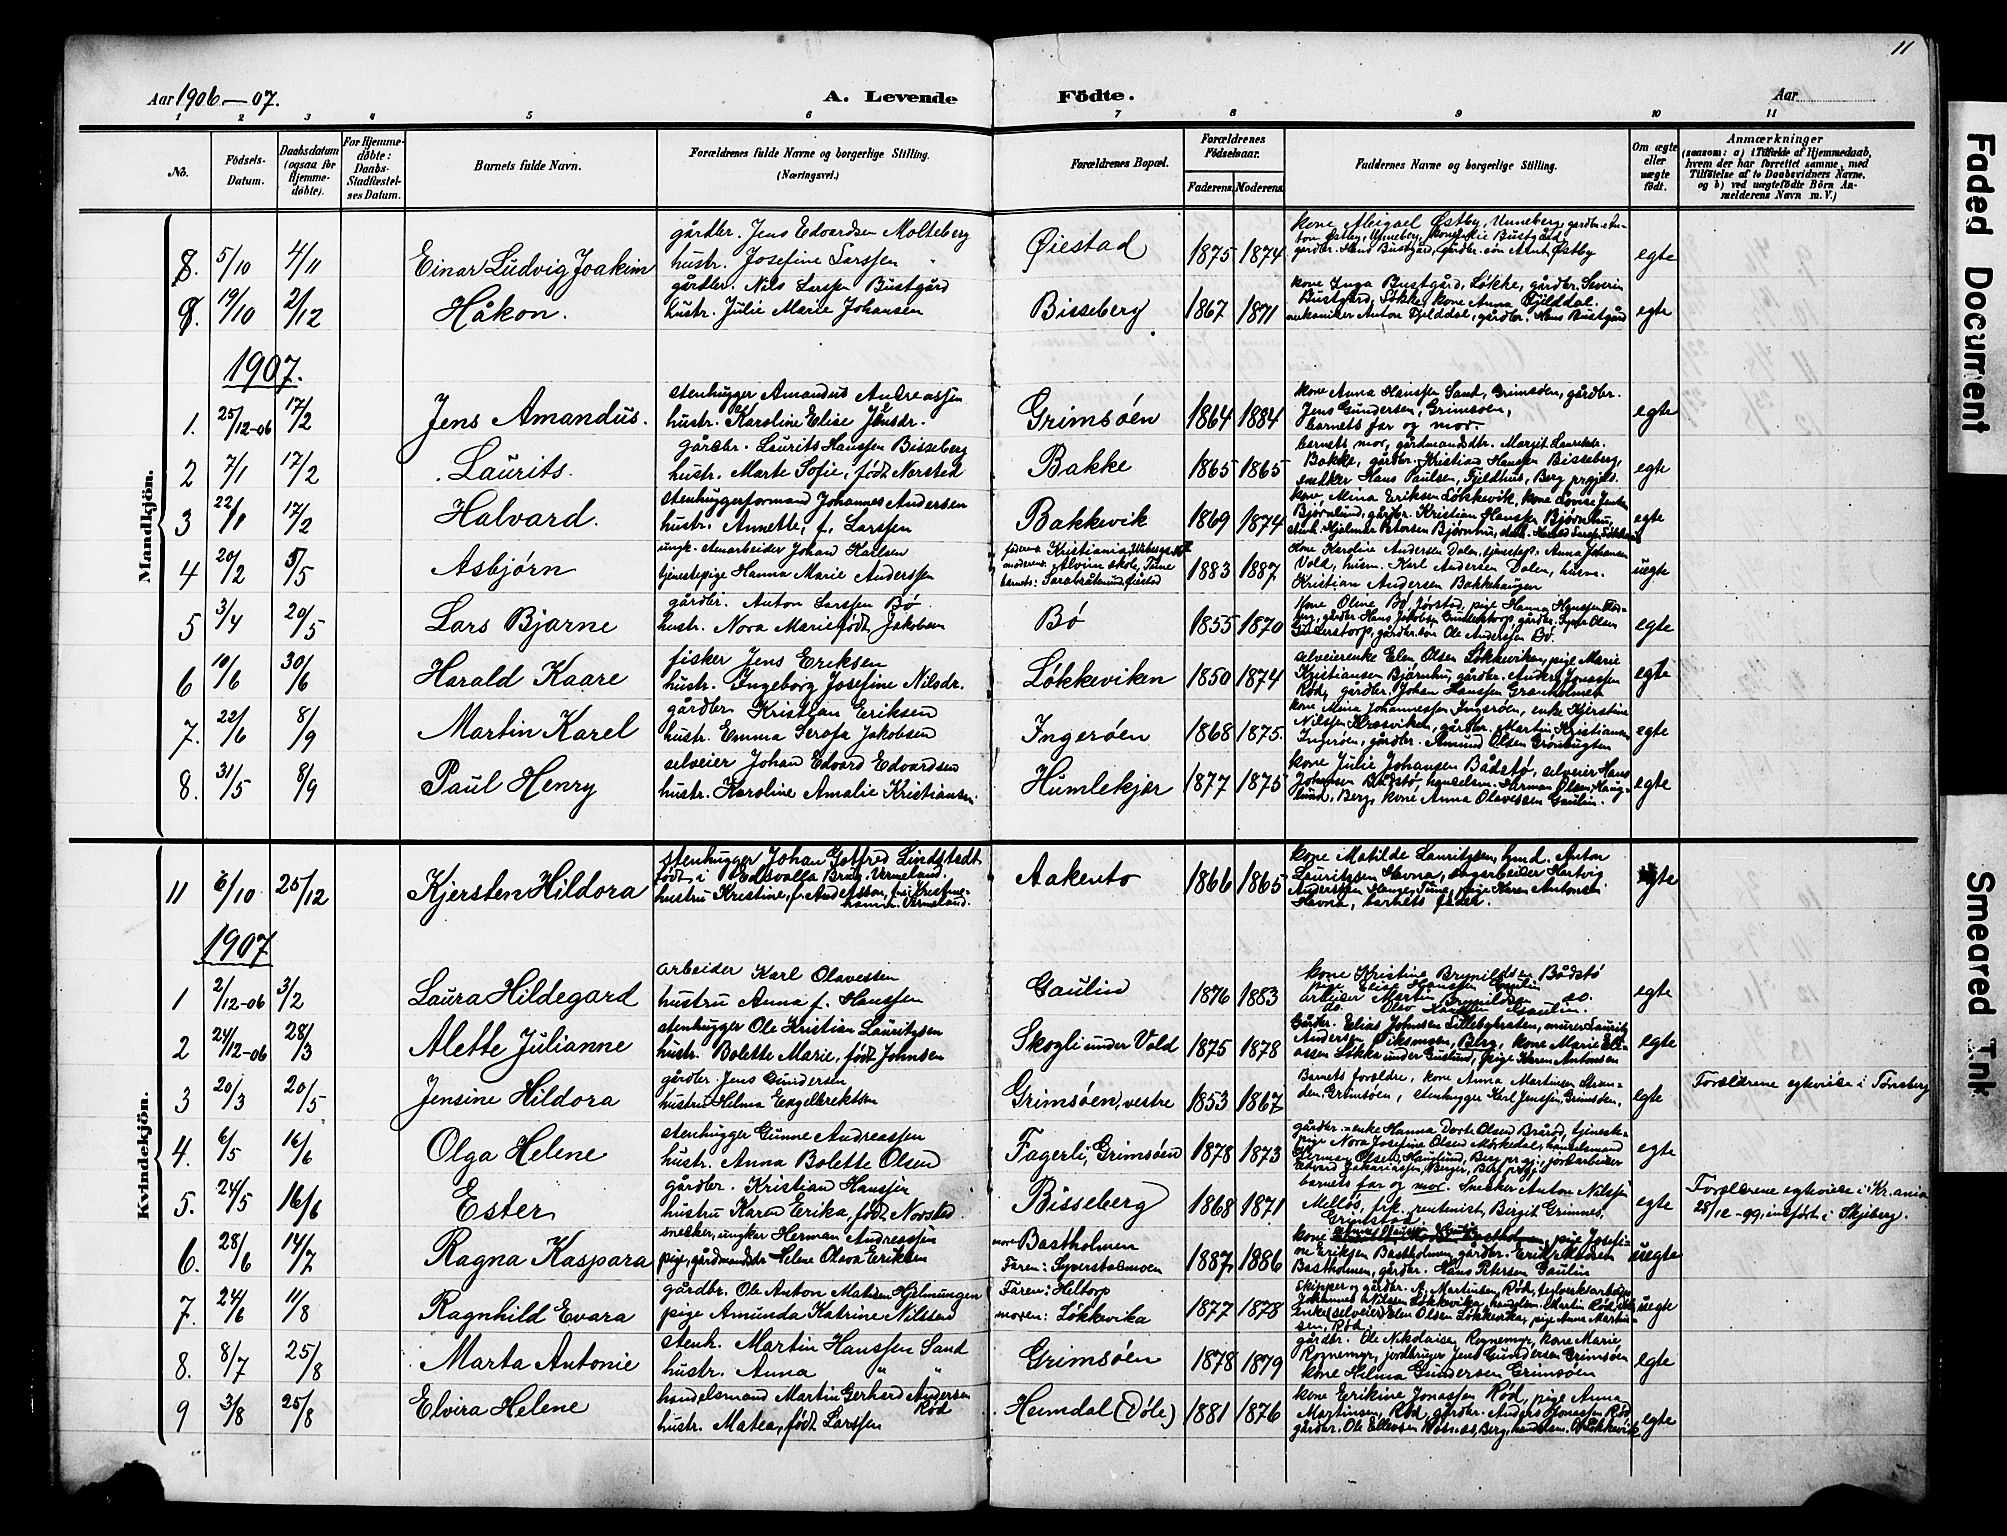 11
Aar 1906—07.
A. Levende Födte.
Aar
1 2 3 4 5 6 7 8 9 10 11
No.
Födsels-Datum.
Daabsdatum (ogsaa for Hjemmedøbte).
For Hjemmedøbte: Daabs-Stadfæstelses Datum.
Barnets fulde Navn.
Forældrenes fulde Navne og borgerlige Stilling.
(Næringsvei.)
Forældrenes Bopæl.
Forældrenes Fødselsaar.
Faderens. Moderens.
Faddernes Navne og borgerlige Stilling.
Om ægte eller uægte født.
Anmærkninger
(saasom: a) i Tilfælde af Hjemmedaab, hvem der har forrettet samme, med Tilføielse af to Daabsvidners Navne, og b) ved uægtefödte Börn Anmelderens Navn m. V.)
Mandkjön.
8. 5/10 4/11 Einar Ludvig Joakim
gårdbr. Jens Edvardsen Molteberg
hustr. Josefine Larssen
Øiestad 1875 1874
kone Abigael Østby, Unneberg, gårdbr. Anton Østby, Unneberg, kone Bustgård, gårdbr. Hans Bustgård, gårdbr. søn Østby
egte
9. 19/10 2/12 Håkon.
gårdbr. Nils Larssen Bustgård
hustr. Julie Marie Johansen
Bisseberg 1867 1871
kone Inga Bustgård, Løkke, gårdbr. Severin
Bustgård, Løkke, kone Anna Fjelddal.
mekaniker Anton Fjelddal, gårdbr. Hans Bustgård
egte
1907.
1. 25/12-06 17/2 Jens Amandus.
stenhugger Amandus Andreassen
hustr. Karoline Elise Jensdr.
Grimsøen 1864 1884
kone Anna Hanssen Sand, Grimsøen, gårdbr.
Jens Gundersen, Grimsøen,
barnets far og mor.
egte
2 7/1 17/2 Laurits.
gårdbr. Laurits Hanssen Bisseberg
hustr. Marte Sofie, født Norsted
Bakke 1865 1865
barnets mor, gårdmandsdtr. Margit Lauritsdr.
Bakke, gårdbr. Kristian Hanssen Bisseberg,
snekker Hans Paulsen, Fjeldhus, Berg prgjeld.
egte
3 22/1 17/2 Halvard.
stenhuggerformand Johannes Andersen
hustr. Annette, f. Larssen
Bakkevik 1869 1874
kone Mina Eriksen Løkkevik, kone Lovise
Bjørnlund, gårdbr. Kristian Hanssen Bjørnhu,
stenh. Hjelmar Petersen Bjørnhu,
egte
4 20/2 5/5 Asbjørn
ungk. stenarbeider Johan Karlsen
tjenestepige Hanna Marie Anderssen
faderens: Kristiania,
moderens: Alvim skole, Tune
barnets: Øiestad
1883 1887
Kone Karoline Andersen Dalen, tjenestep. Anna Johansen
Vold, husm. Karl Andersen Dalen, husm.
Kristian Andersen Bakkehaugen
uegte
5 3/4 20/5 Lars Bjarne
gårdbr. Anton Larssen Bø
hustr. Nora Marie født Jakobsen
Bø 1855 1870
Kone Oline Bø, Jørstad, pige Hanna Hanssen
gårdbr. Hans Jakobsen Gunderstorp, gårdbr. Olsen
Gunderstorp, gårdbr. søn Ole Anderssen Bø.
egte
6 10/6 30/6 Harald Kaare
fisker Jens Eriksen
hustr. Ingeborg Josefine Nilsdr.
Løkkeviken 1850 1874
selveierenke Elen Olsen Løkkeviken, pige Marie
Kristiansen Bjørnhu, gårdbr. Anders Jonassen
Rød, gårdbr. Johan Hanssen Granholmen
egte
7. 22/6 8/9 Martin Karel
gårdbr. Kristian Eriksen
hustr. Emma Serafa Jakobsen
Ingerøen 1868 1875.
kone Mina Johannessen Ingerøen, enke Kjerstine
Nilssen Krosviken, gårdbr. Martin Kristiansen
Ingerøen, gårdbr. Amund Olsen Grønbugten
egte
8. 31/5 8/9 Paul Henry
selveier Johan Edvard Edvardsen
hustr. Karoline Amalie Kristiansen
Humlekjær 1877 1875
kone Julie Johansen Bådstø, selveier Hans
Johansen Bådstø, handelsm. Herman Olsen Haug-
lund, Berg, kone Anna Olavessen Gaulin.
egte
Kvindekjön.
11 6/10 25/12 Kjersten Hildora
stenhugger Johan Gotfred Lindstadt
født i Edsvalla Brug, Vermeland.
hustru Kristine, f. Andersson, f. i Kristine-
hamn, Vermeland.
Aakersto 1866 1865
kone Matilde Lauritzsen, hmd. Anton
Lauritzsen Havna, sagarbeider Hartvig
Anderssen Hauge, Tune, pige Karen Antonsen
Havna, barnets fader.
egte
1907
1 2/12-06 3/2 Laura Hildegard
arbeider Karl Olavesen
hustru Anna f. Hanssen
Gaulin 1876 1883
kone Kristine Brynildsen Bådstø
pige Elise Hanssen Gaulin
arbeider Martin Brynildsen do.
do. Olav Gaulin.
egte
2 24/12-06 28/3 Alette Julianne
stenhugger Ole Kristian Lauritzsen
hustr. Bolette Marie, født Johnsen
Skogli under Vold 1875 1878
Gårdbr. Elias Johnsen Lillebybraten, murer Laurits
Andersen Viksmoen, Berg, kone Marie Eli-
assen Løkke under Guslund, pige Karen Antonsen
egte
3 20/3 20/5 Jensine Hildora
gårdbr. Jens Gundersen,
hustru Hilma Engelbrektsen
Grimsøen, vestre 1853 1867
Barnets forældre, kone Anna Martinsen Stran-
den, Grimsøen, stenhugger Karl Jenssen, Grimsøen.
egte
Forældrene egteviede i Tønsberg
4. 6/5 16/6 Olga Helene
stenhugger Gunne Andreassen
hustr. Anna Bolette Olsen
Fagerli, Grimsøen 1878 1873
gårdbr.-enke Hanna Dorte Olsen Brård, tjeneste-
pige Nora Josefine Olsen Mørkedal, handelsmand
Herman Olsen Hauglund, Berg prgj, jordarbeider
Edvard Zakariassen, Berger, Berg prgj.
egte
5. 24/5 16/6 Ester
gårdbr. Kristian Hanssen
hustru Karen Erika, født Norsted
Bisseberg 1868 1871
barnets far og mor. Snekker Anton Nilssen
Melløs, frk. rentenist, Birgit Grimnes,
Grynstad
egte
Forældrene egteviede i Kr.ania
28/12-99, indført i Skjeberg.
6. 28/6 14/7 Ragna Kaspara
snekker, ungkar Herman Andreassen
pige, gårdmandsdtr. Helene Olava Eriksen
mor: Bastholmen
Faren: Syverstadmoen
1887 1886
kone pige Josefi-
ne Eriksen Bastholmen, gårdbr. Erik Madsen
Bastholmen, gårdbr. Hans Petersen Gaulin
uegte
7. 24/6 11/8 Ragnhild Evara
gårdbr. Ole Anton Matisen Hjelmungen
pige Amunda Katrine Nilssen
Faren: Heltorp
moren: Løkkevika
1877 1878
Skipper og gårdbr. A. Martinsen, Rød,
Johannes Nilssen Løkkevika, handelsm. Martin Rød,
Enke (selveier) Elen Olsen Løkkevika, pige Anna Martin-
sen, Rød.
uegte
8. 8/7 25/8 Marta Antonie
stenh. Martin Hanssen Sand
hustr. Anna " "
Grimsøen 1878 1879
gårdbr. Ole Nikolaisen Rognemyr, kone Marie
Rognemyr, jordbruger Jens Gundersen Grimsøen
kone Hilma Gundersen Grimsøen
egte
9 3/8 25/8 Elvira Helene
handelsmand Martin Gerhard Andersen
Rød
hustr. Matea, født Larssen
Heimdal (Døle) 1881 1876
kone Erikine Jonassen Rød, pige Anna
Martinsen, Rød, gårdbr. Anders Jonassen Rød,
gårdbr. Ole Ellevsen Berg, handelsm. Løkkevik
egte
Faded Document
Smeared Ink